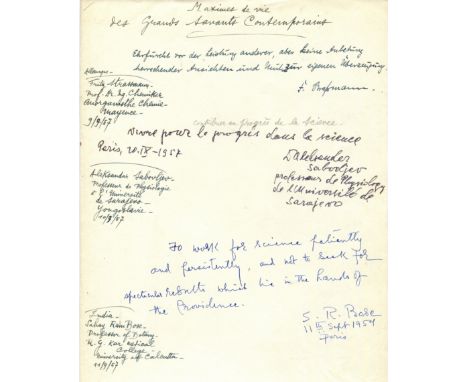 Maximes de vie
des Grands Savants Contemporains
Ehrfurcht vor der Leistung anderer, aber keine Anbetung
herrschender Ansichten und Mut zur eigenen Überzeugung
F. Straßmann.
Allemagne
Fritz Strassmann
Prof. Dr. Ing. Chemiker
Anorganische Chemie
Mayence
9/9/57
contribuer au progrès de la science
Vivre pour le progrès dans la science
Paris, 10.IX-1957
Dr Aleksandar
Sabovljev
professeur de Physiology
de l'Université de
Sarajevo
Aleksandar Sabovljev
Professeur de Physiologie
à l'Université
de Sarajevo
Yougoslavie
10/9/57
To work for science patiently
and persistently, and not to seek for
spectacular results which lie in the hands of
the Providence.
S. R. Bose
11th Sept 1957
Paris
India
Sahay Ram Bose
Professor of Botany
R. G. Kar national
College
University of Calcutta
11/9/57